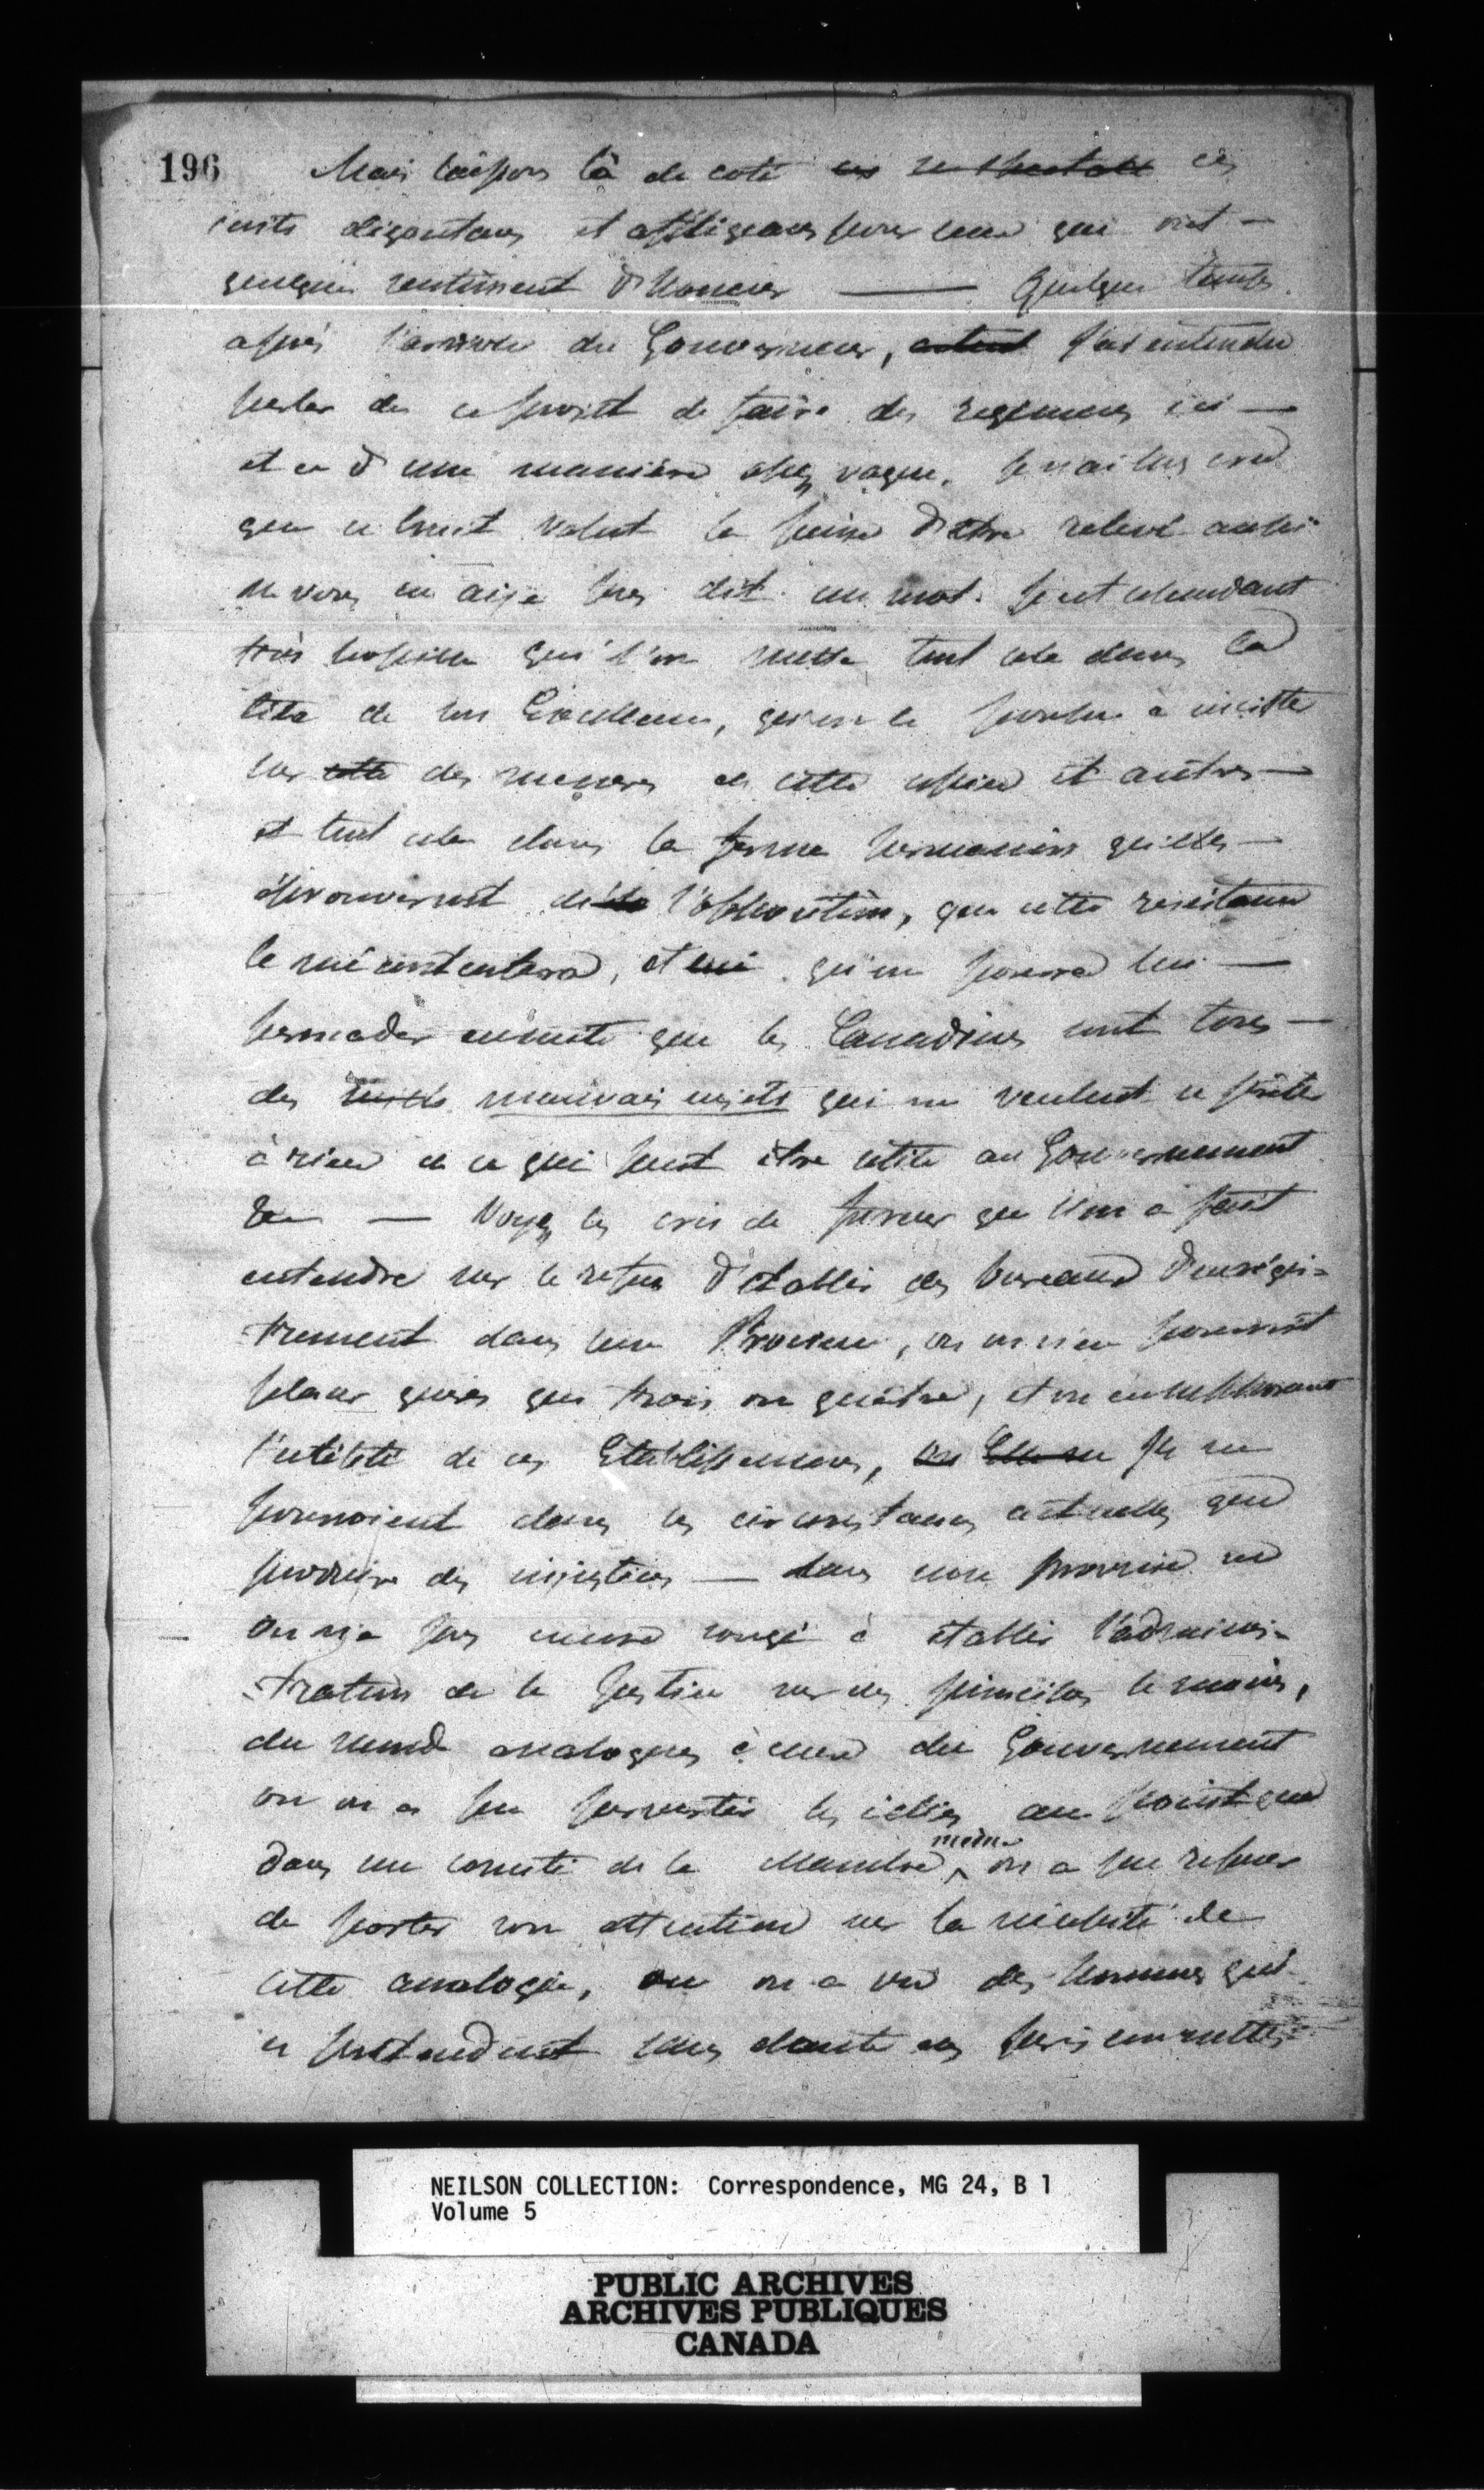 196
Mais laissons là de coté ces
 dégoutans et affligeans pour ceux qui ont —
quelque sentiment d'honneur — Quelque temps
après l'arrivée du Gouverneur, j'ai entendu
parler de ce projet de faire des régimens ici —
et ce d'une manière assez vague. Je n'ai pas cru
que ce bruit valut la peine d'être relevé aussi
ne vous en ai je pas dit un mot. Il est cependant
très possible que l'on mette tout cela dans la
tête de son Excellence, qu'on le porte à insister
sur des mesures de cette espèce et autres —
et tout cela dans la ferme persuasion qu'elles —
éprouveront de l'opposition, que cette résistance
le mécontentera, et qu'on pourra lui —
persuader ensuite que les Canadiens sont tous —
des mauvais sujets qui ne veulent se prêter
à rien de ce qui peut être utile au Gouvernement
&c — Voyez les cris de fureur que l'on a fait
entendre sur le refus d'établir des bureaux d'enrégi-
trement dans une Province, où on n'en pourroit
placer guères que trois ou quatre, et où en supposant
l'utilité de ces Etablissemens, ils ne
pourroient dans les circonstances actuelles que
produire des injustices — dans une province où
on n'a pas encore songé à établir l'adminis-
tration de la Justice sur des principes le moins,
du monde analogues à ceux du Gouvernement
où on a pu pervertir les idées au point que
dans un comité de la Chambre même on a pu refuser
de porter son attention sur la nécessité de
cette analogie, où on a vu des hommes qui
se prétendent sans doute des jurisconsultes
NEILSON COLLECTION: Correspondence, MG 24, B 1
Volume 5
PUBLIC ARCHIVES
ARCHIVES PUBLIQUES
CANADA